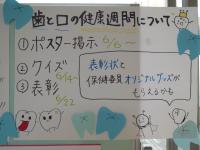 歯と口の健康週間について
① ポスター掲示 6/6〜
② クイズ 6/14〜
③ 表彰 6/22
表彰状と
保健委員オリジナルグッズが
もらえるかも